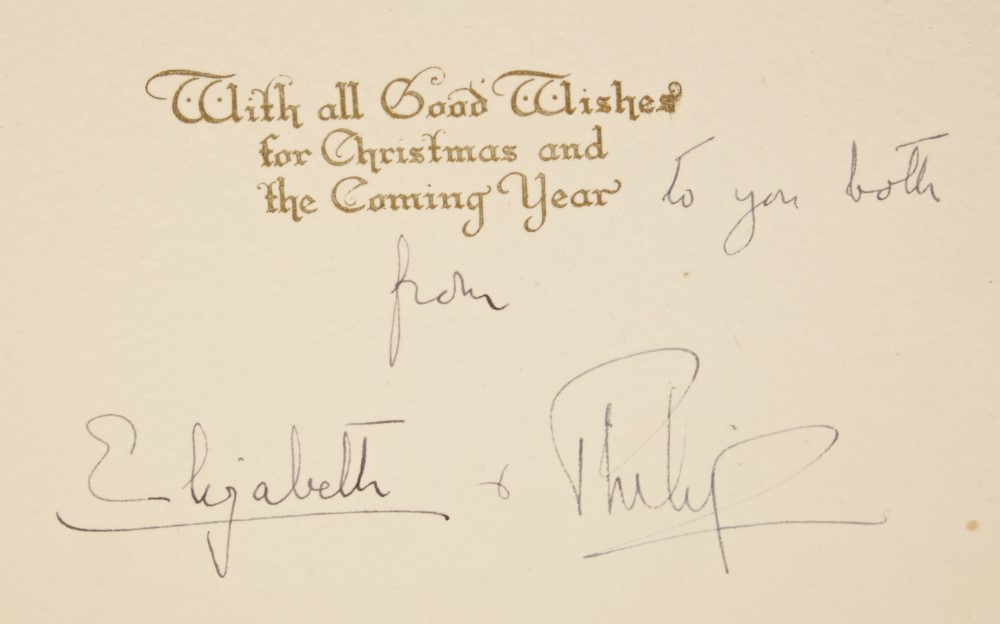 With all Good Wishes
for Christmas and
the Coming Year to you both
from
Elizabeth & Philip